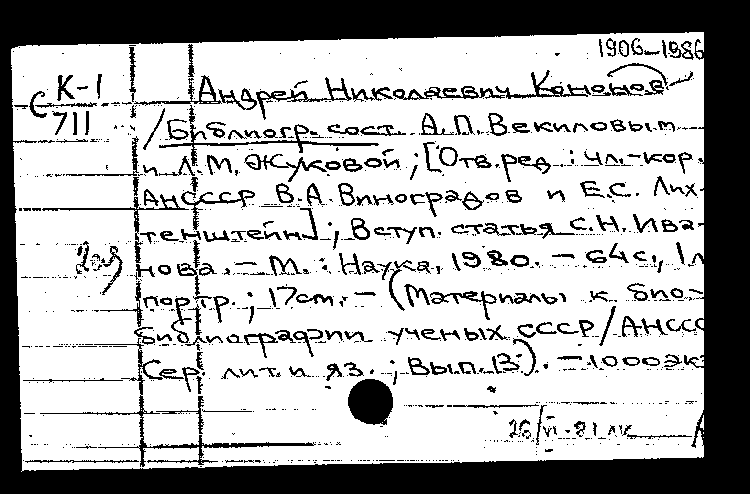 1906-1986
С К-1
711
Андрей Николаевич Кононов
/Библиогр. сост. А.П. Векиловым
и Л.М. Жуковой; [Отв. ред.: чл.-кор.
АНСССР В.А. Виноградов и Е.С. Лих-
тенштейн]; Вступ. статья С.Н. Ива-
нова. - М.: Наука, 1980. - 64 с, 1 л
портр.; 17 cm. - (Материалы к био-
библиографии ученых СССР/АНССС
Сер. лит. и яз.; Вып. 13). - 1000 эк
26/VI-81